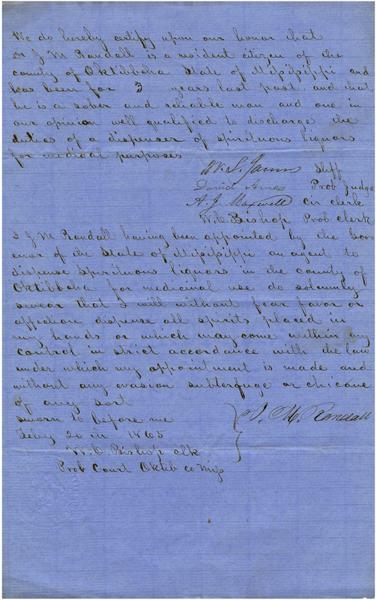 We do hereby certify upon our honor that
Dr J M Randall is a resident citizen of the
county of Oktibbeha State of Mississippi and
has been for 3 years last past and that
he is a sober and reliable man and one in
our opinion well qualified to discharge the
duties of a dispenser of spirituous liquors
for medical purposes
Shff
David Ames Prob Judge
A. J. Maxwell Cir clerk
W. C. Bishop Prob clerk
I J M Randall having been appointed by the Gov
ernor of the State of Mississippi an agent to
dispense Spirituous liquors in the county of
Oktibbeha for medicinal use do solemnly
swear that I will without fear favor or
affection dispense all spirits placed in
my hands or which may come within my
control in strict accordance with the law
under which my appointment is made and
without any evasion subterfuge or chicane
of any sort
sworn to before me J. M. Randall
20 in 1865
W. C. Bishop clk
Prob Court Oktib co Miss